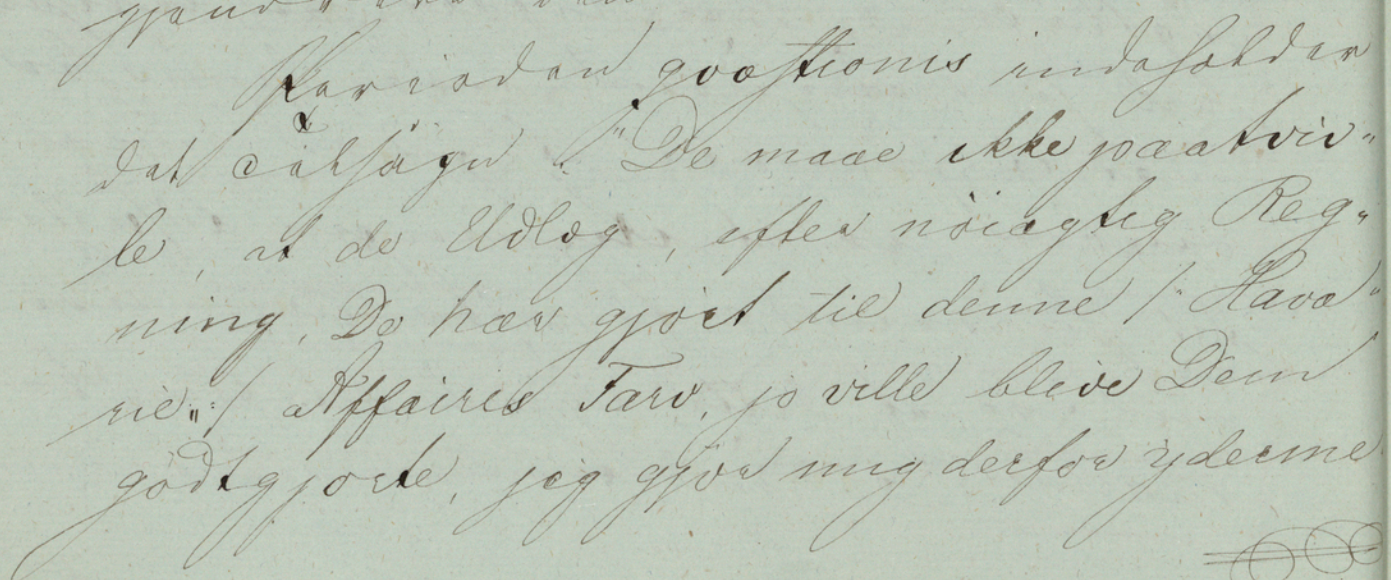 Perioden qvæstionis indeholder
det Tilsagn: "De maae ikke paatviv„
le, at de Udlæg, efter nöiagtig Reg„
ning, De har gjort til denne /: Hava„
rie„:/ Affaires Tarv, jo ville blive Dem
godtgjorte, jeg gjör mig derfor yderme